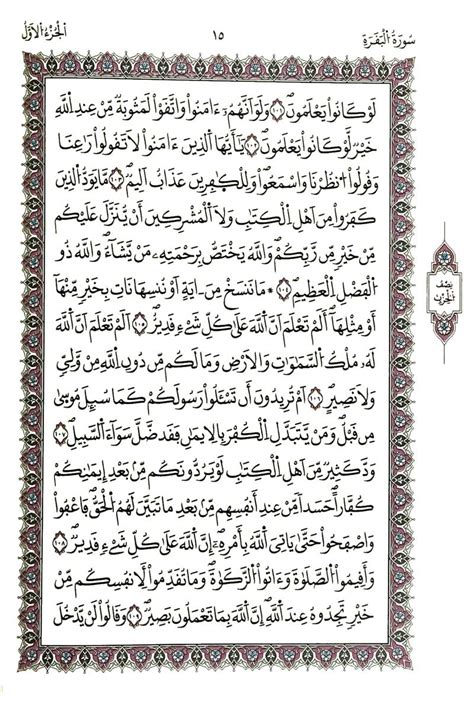 سُورَةُ الْبَقَرَةِ ١٥ الْجُزْءُ الْأَوَّلُ
لَوْ كَانُوا۟ يَعْلَمُونَ ١٠١ وَلَوَ اَنَّهُمُۥٓ ءَامَنُوا۟ وَاتَّقَوْا۟ لَمَثُوبَةٌ مِّنْ عِندِ اللَّهِ
خَيْرٌ لَّوْ كَانُوا۟ يَعْلَمُونَ ١٠٢ يَٰٓأَيُّهَا الَّذِينَ ءَامَنُوا۟ لَا تَقُولُوا۟ رَٰعِنَا
وَقُولُوا۟ انظُرْنَا وَاسْمَعُوا۟ وَلِلْكَٰفِرِينَ عَذَابٌ اَلِيمٌ ١٠٣ مَّا يَوَدُّ الَّذِينَ
كَفَرُوا۟ مِنَ اَهْلِ الْكِتَٰبِ وَلَا الْمُشْرِكِينَ أَنْ يُّنَزَّلَ عَلَيْكُم
مِّنْ خَيْرٍ مِّن رَّبِّكُمْ وَاللَّهُ يَخْتَصُّ بِرَحْمَتِهِۦ مَنْ يَّشَآءُ وَاللَّهُ ذُو
الْفَضْلِ الْعَظِيمِ ١٠٤ مَا نَنسَخْ مِنَ ايَةٍ اَوْ نُنسِهَا نَاتِ بِخَيْرٍ مِّنْهَآ
أَوْ مِثْلِهَآ أَلَمْ تَعْلَمَ اَنَّ اللَّهَ عَلَىٰ كُلِّ شَےْءٍ قَدِيرٌ ١٠٥ اَلَمْ تَعْلَمَ اَنَّ اللَّهَ
لَهُۥ مُلْكُ السَّمَٰوَٰتِ وَالَارْضِ وَمَا لَكُم مِّن دُونِ اللَّهِ مِنْ وَّلِيٍّ
وَلَا نَصِيرٍ ١٠٦ اَمْ تُرِيدُونَ أَن تَسْـَٔلُوا۟ رَسُولَكُمْ كَمَا سُئِلَ مُوسَىٰ
مِن قَبْلُ وَمَنْ يَّتَبَدَّلِ الْكُفْرَ بِالِايمَٰنِ فَقَد ضَّلَّ سَوَآءَ السَّبِيلِ ١٠٧
وَدَّ كَثِيرٌ مِّنَ اَهْلِ الْكِتَٰبِ لَوْ يَرُدُّونَكُم مِّنۢ بَعْدِ إِيمَٰنِكُمْ
كُفَّارًا حَسَدًا مِّنْ عِندِ أَنفُسِهِم مِّنۢ بَعْدِ مَا تَبَيَّنَ لَهُمُ الْحَقُّ فَاعْفُوا۟
وَاصْفَحُوا۟ حَتَّىٰ يَاتِيَ اللَّهُ بِأَمْرِهِۦٓ إِنَّ اللَّهَ عَلَىٰ كُلِّ شَےْءٍ قَدِيرٌ ١٠٨
وَأَقِيمُوا۟ الصَّلَوٰةَ وَءَاتُوا۟ الزَّكَوٰةَ وَمَا تُقَدِّمُوا۟ لِأَنفُسِكُم مِّنْ
خَيْرٍ تَجِدُوهُ عِندَ اللَّهِ إِنَّ اللَّهَ بِمَا تَعْمَلُونَ بَصِيرٌ ١٠٩ وَقَالُوا۟ لَنْ يَّدْخُلَ
نِصْف
الْحِزْب